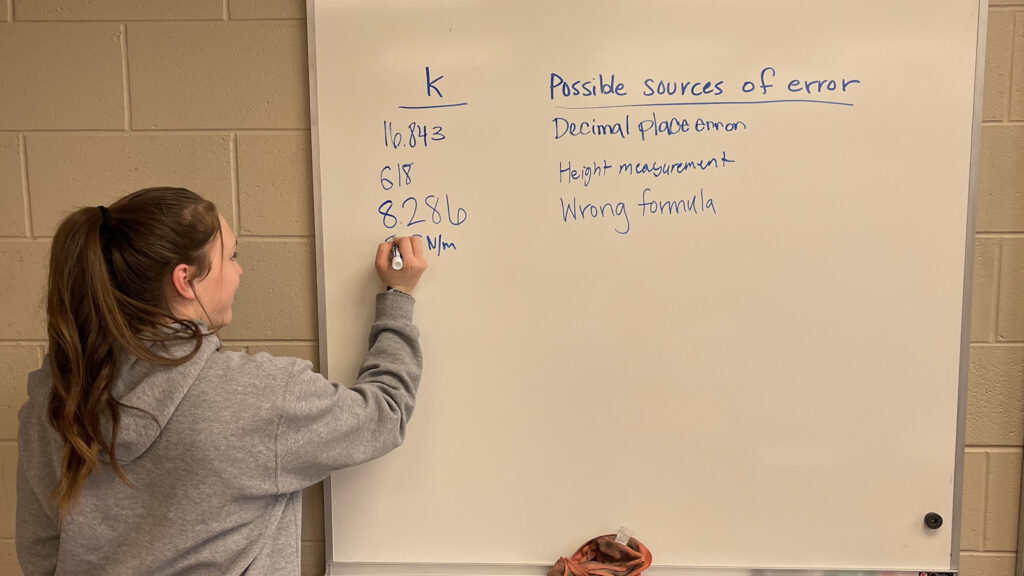 k Possible sources of error
16.843 Decimal place error
618 Height measurement
8.286 Wrong formula
N/m